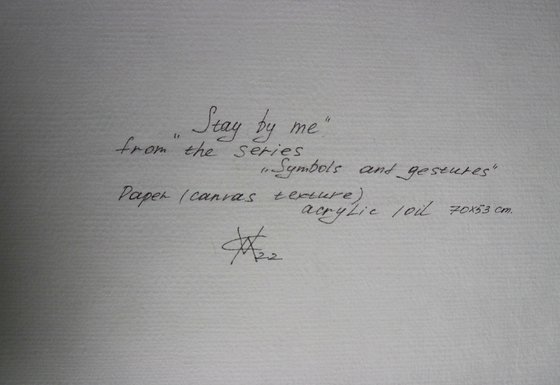 "Stay by me"
from the series
„Symbols and gestures"
Paper (canvas texture)
acrylic / oil 70x53 cm.
22